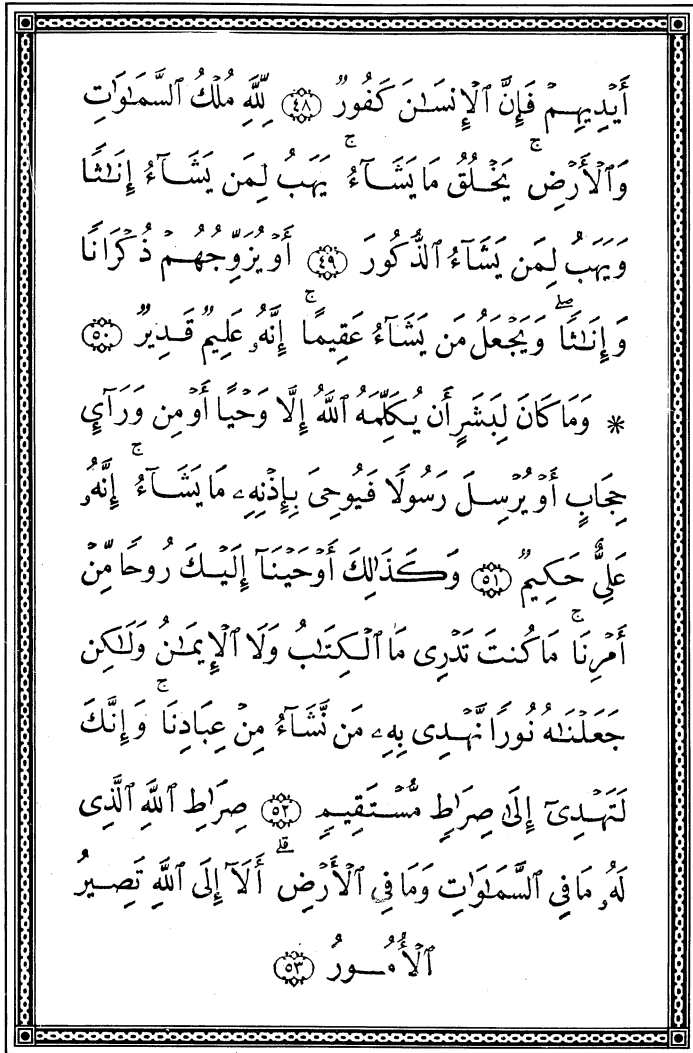 أَيْدِيهِمْ فَإِنَّ ٱلْإِنسَٰنَ كَفُورٌ ۝٤٨ لِّلَّهِ مُلْكُ ٱلسَّمَٰوَٰتِ
وَٱلْأَرْضِ ۚ يَخْلُقُ مَا يَشَآءُ ۚ يَهَبُ لِمَن يَشَآءُ إِنَٰثًا
وَيَهَبُ لِمَن يَشَآءُ ٱلذُّكُورَ ۝٤٩ أَوْ يُزَوِّجُهُمْ ذُكْرَانًا
وَإِنَٰثًا ۖ وَيَجْعَلُ مَن يَشَآءُ عَقِيمًا ۚ إِنَّهُۥ عَلِيمٌ قَدِيرٌ ۝٥٠
* وَمَا كَانَ لِبَشَرٍ أَن يُكَلِّمَهُ ٱللَّهُ إِلَّا وَحْيًا أَوْ مِن وَرَآيِٕ
حِجَابٍ أَوْ يُرْسِلَ رَسُولًا فَيُوحِىَ بِإِذْنِهِۦ مَا يَشَآءُ ۚ إِنَّهُۥ
عَلِىٌّ حَكِيمٌ ۝٥١ وَكَذَٰلِكَ أَوْحَيْنَآ إِلَيْكَ رُوحًا مِّنْ
أَمْرِنَا ۚ مَا كُنتَ تَدْرِى مَا ٱلْكِتَٰبُ وَلَا ٱلْإِيمَٰنُ وَلَٰكِن
جَعَلْنَٰهُ نُورًا نَّهْدِى بِهِۦ مَن نَّشَآءُ مِنْ عِبَادِنَا ۚ وَإِنَّكَ
لَتَهْدِىٓ إِلَىٰ صِرَٰطٍ مُّسْتَقِيمٍ ۝٥٢ صِرَٰطِ ٱللَّهِ ٱلَّذِى
لَهُۥ مَا فِى ٱلسَّمَٰوَٰتِ وَمَا فِى ٱلْأَرْضِ ۗ أَلَآ إِلَى ٱللَّهِ تَصِيرُ
ٱلْأُمُورُ ۝٥٣